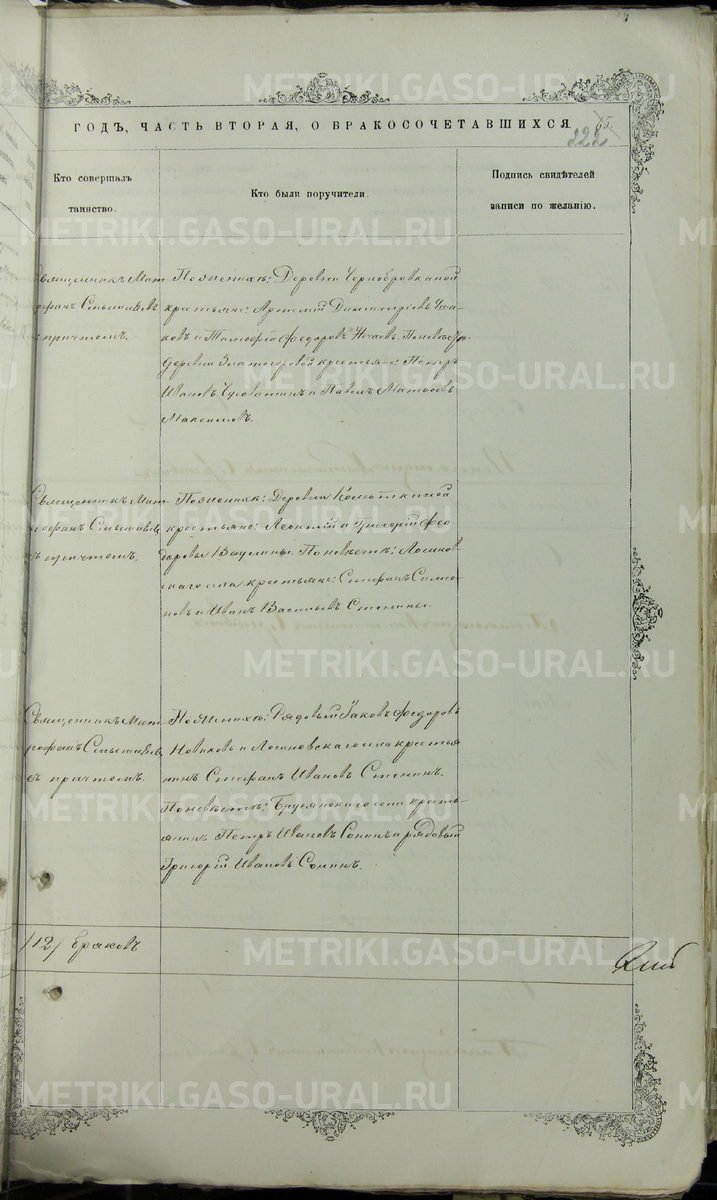 ГОДЪ, ЧАСТЬ ВТОРАЯ, О БРАКОСОЧЕТАВШИХСЯ.
222
Кто совершалъ
таинство.
Кто были поручители.
Подпись свидѣтелей
записи по желанію.
Священникъ Мит-
рофанъ
съ причтомъ.
По женихѣ: Деревни Чернобровкиной
крестьяне: Артемій Димитріевъ
и Тимофей Федоровъ По невѣстѣ:
деревни Златогоровой крестьяне: Петръ
Ивановъ и Павелъ
Максимовъ.
Священникъ Мит-
рофанъ
съ причтомъ.
По женихѣ: Деревни Колюткиной
крестьяне: Леонтій и Григорій Фео-
доровы Ваулины. По невѣстѣ: Логинов-
скаго села крестьяне: Стефанъ Симео-
новъ и Иванъ Васильевъ Стенины.
Священникъ Мит-
рофанъ
съ причтомъ.
По женихѣ: Рядовый Іаковъ Федоровъ
Новиковъ и Логиновскаго села крестья-
нинъ Стефанъ Ивановъ Стенинъ.
По невѣстѣ: Бруснянскаго села кресть-
янинъ Петръ Ивановъ Сонинъ и рядовый
Григорій Ивановъ Сонинъ.
/12/ браковъ
METRIKI.GASO-URAL.RU